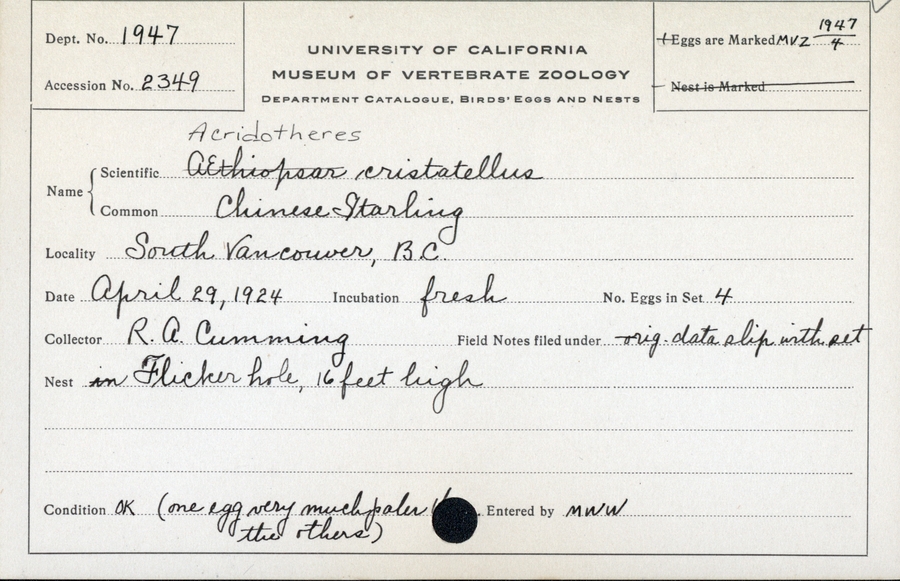 Dept. No. 1947
Accession No. 2349
UNIVERSITY OF CALIFORNIA
MUSEUM OF VERTEBRATE ZOOLOGY
DEPARTMENT CATALOGUE, BIRDS' EGGS AND NESTS
Eggs are Marked MVZ 1947/4
Nest is Marked
Acridotheres
Name
Scientific Æthiopsar cristatellus
Common Chinese Starling
Locality South Vancouver, B.C.
Date April 29, 1924 Incubation fresh No. Eggs in Set 4
Collector R. A. Cumming Field Notes filed under orig. data slip with set
Nest in Flicker hole, 16 feet high
Condition OK (one egg very much paler
the others)
Entered by MWW